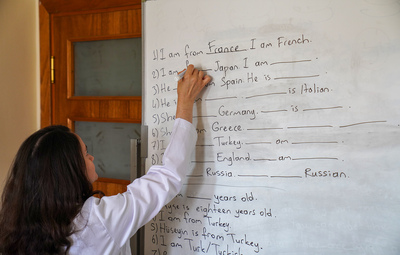 1) I am from France I am French.
2) I am ____ Japan. I am ____.
3) He ____ Spain. He is ____.
4) He is ____ ____ is Italian.
5) She ____ Germany. ____ is ____.
6) ____ am ____ Greece ____ ____ ____
7) I ____ Turkey. ____ am ____.
8) I ____ England ____ am ____.
____ Russia. ____ Russian.
____ years old.
is eighteen years old.
I am from Turkey.
5) Hüseyin is from Turkey.
6) I am Turk/Turkish